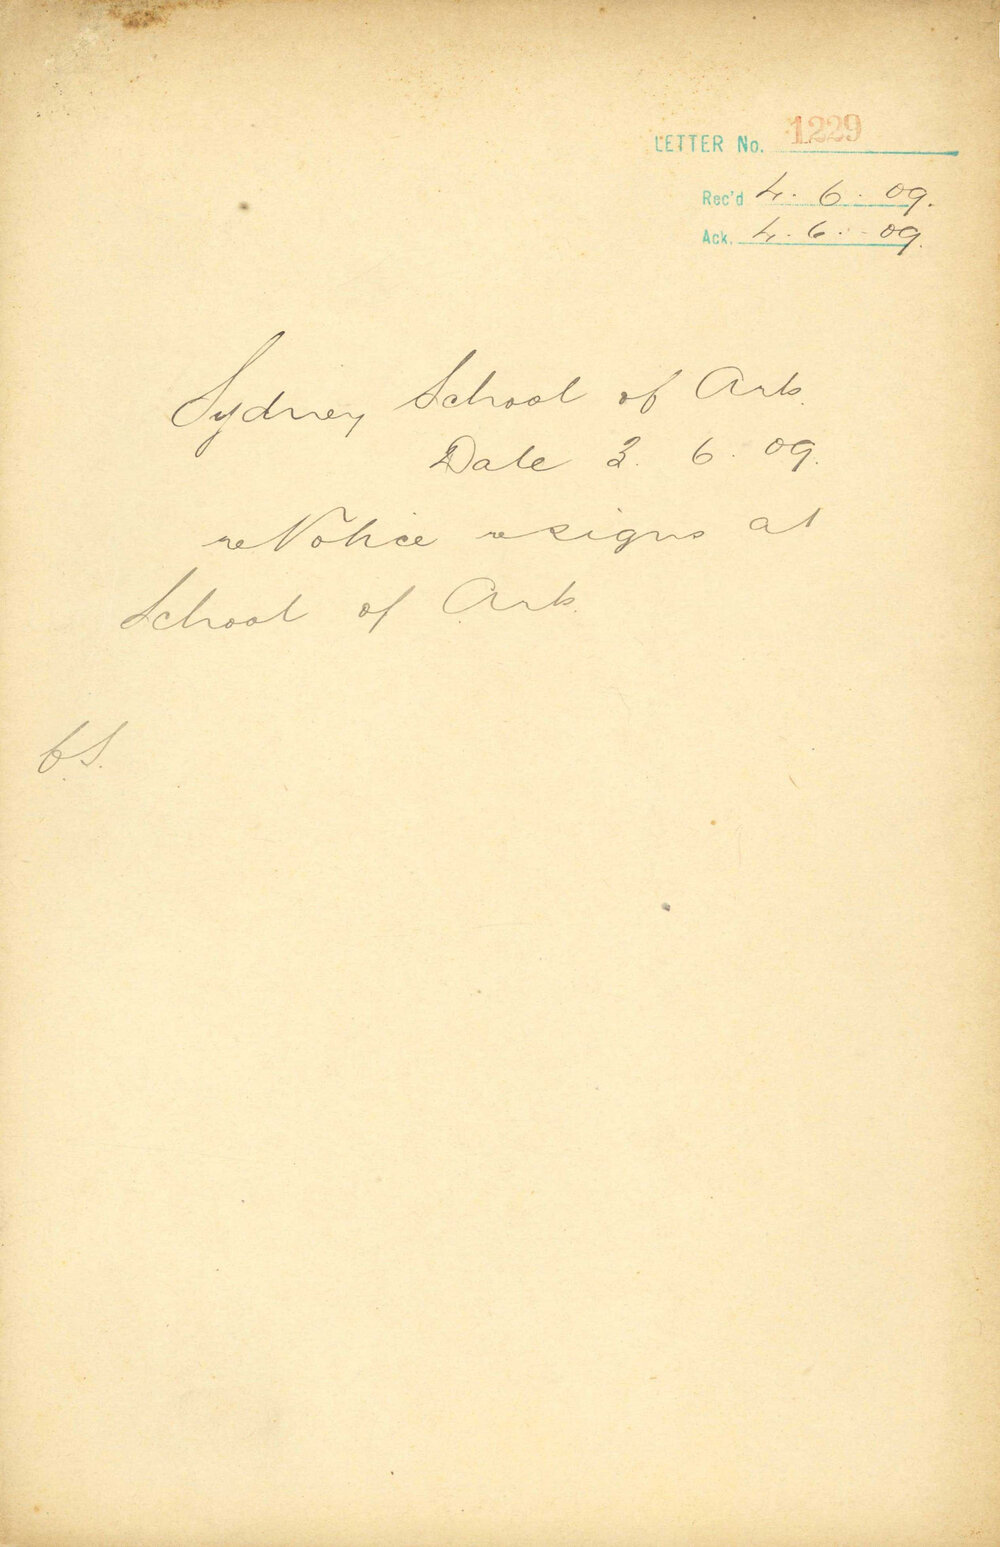 LETTER No. 1229
Rec'd 4. 6. 09.
Ack. 4. 6. 09.
Sydney School of Arts.
Date 3. 6. 09.
re Notice re signs at
School of Arts.